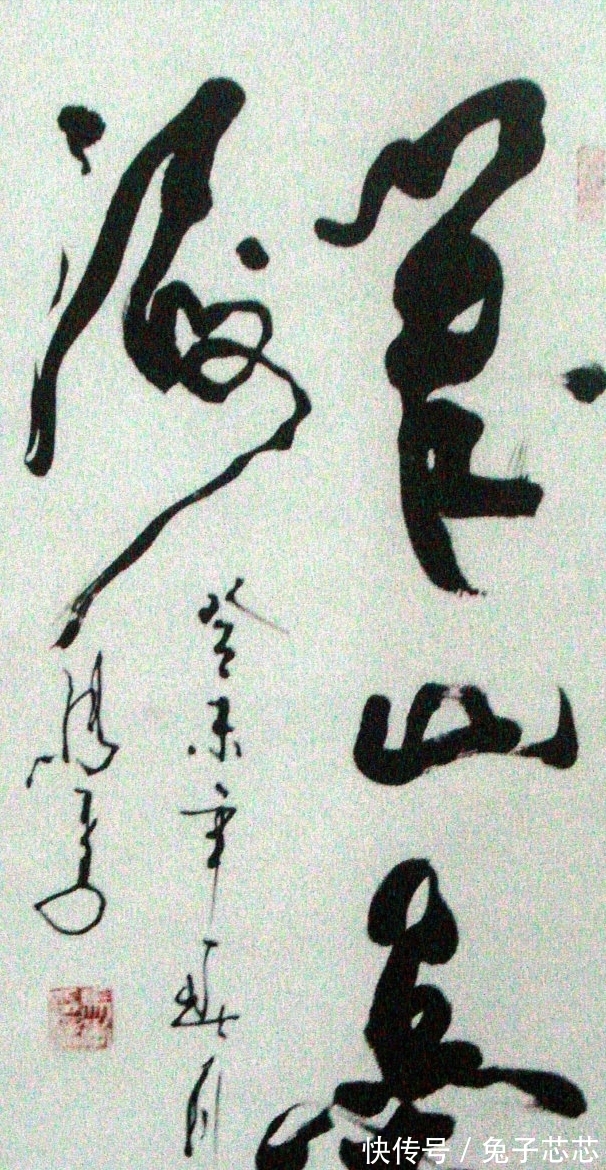 筆山墨
海
癸未年春月
快传号 / 兔子芯芯